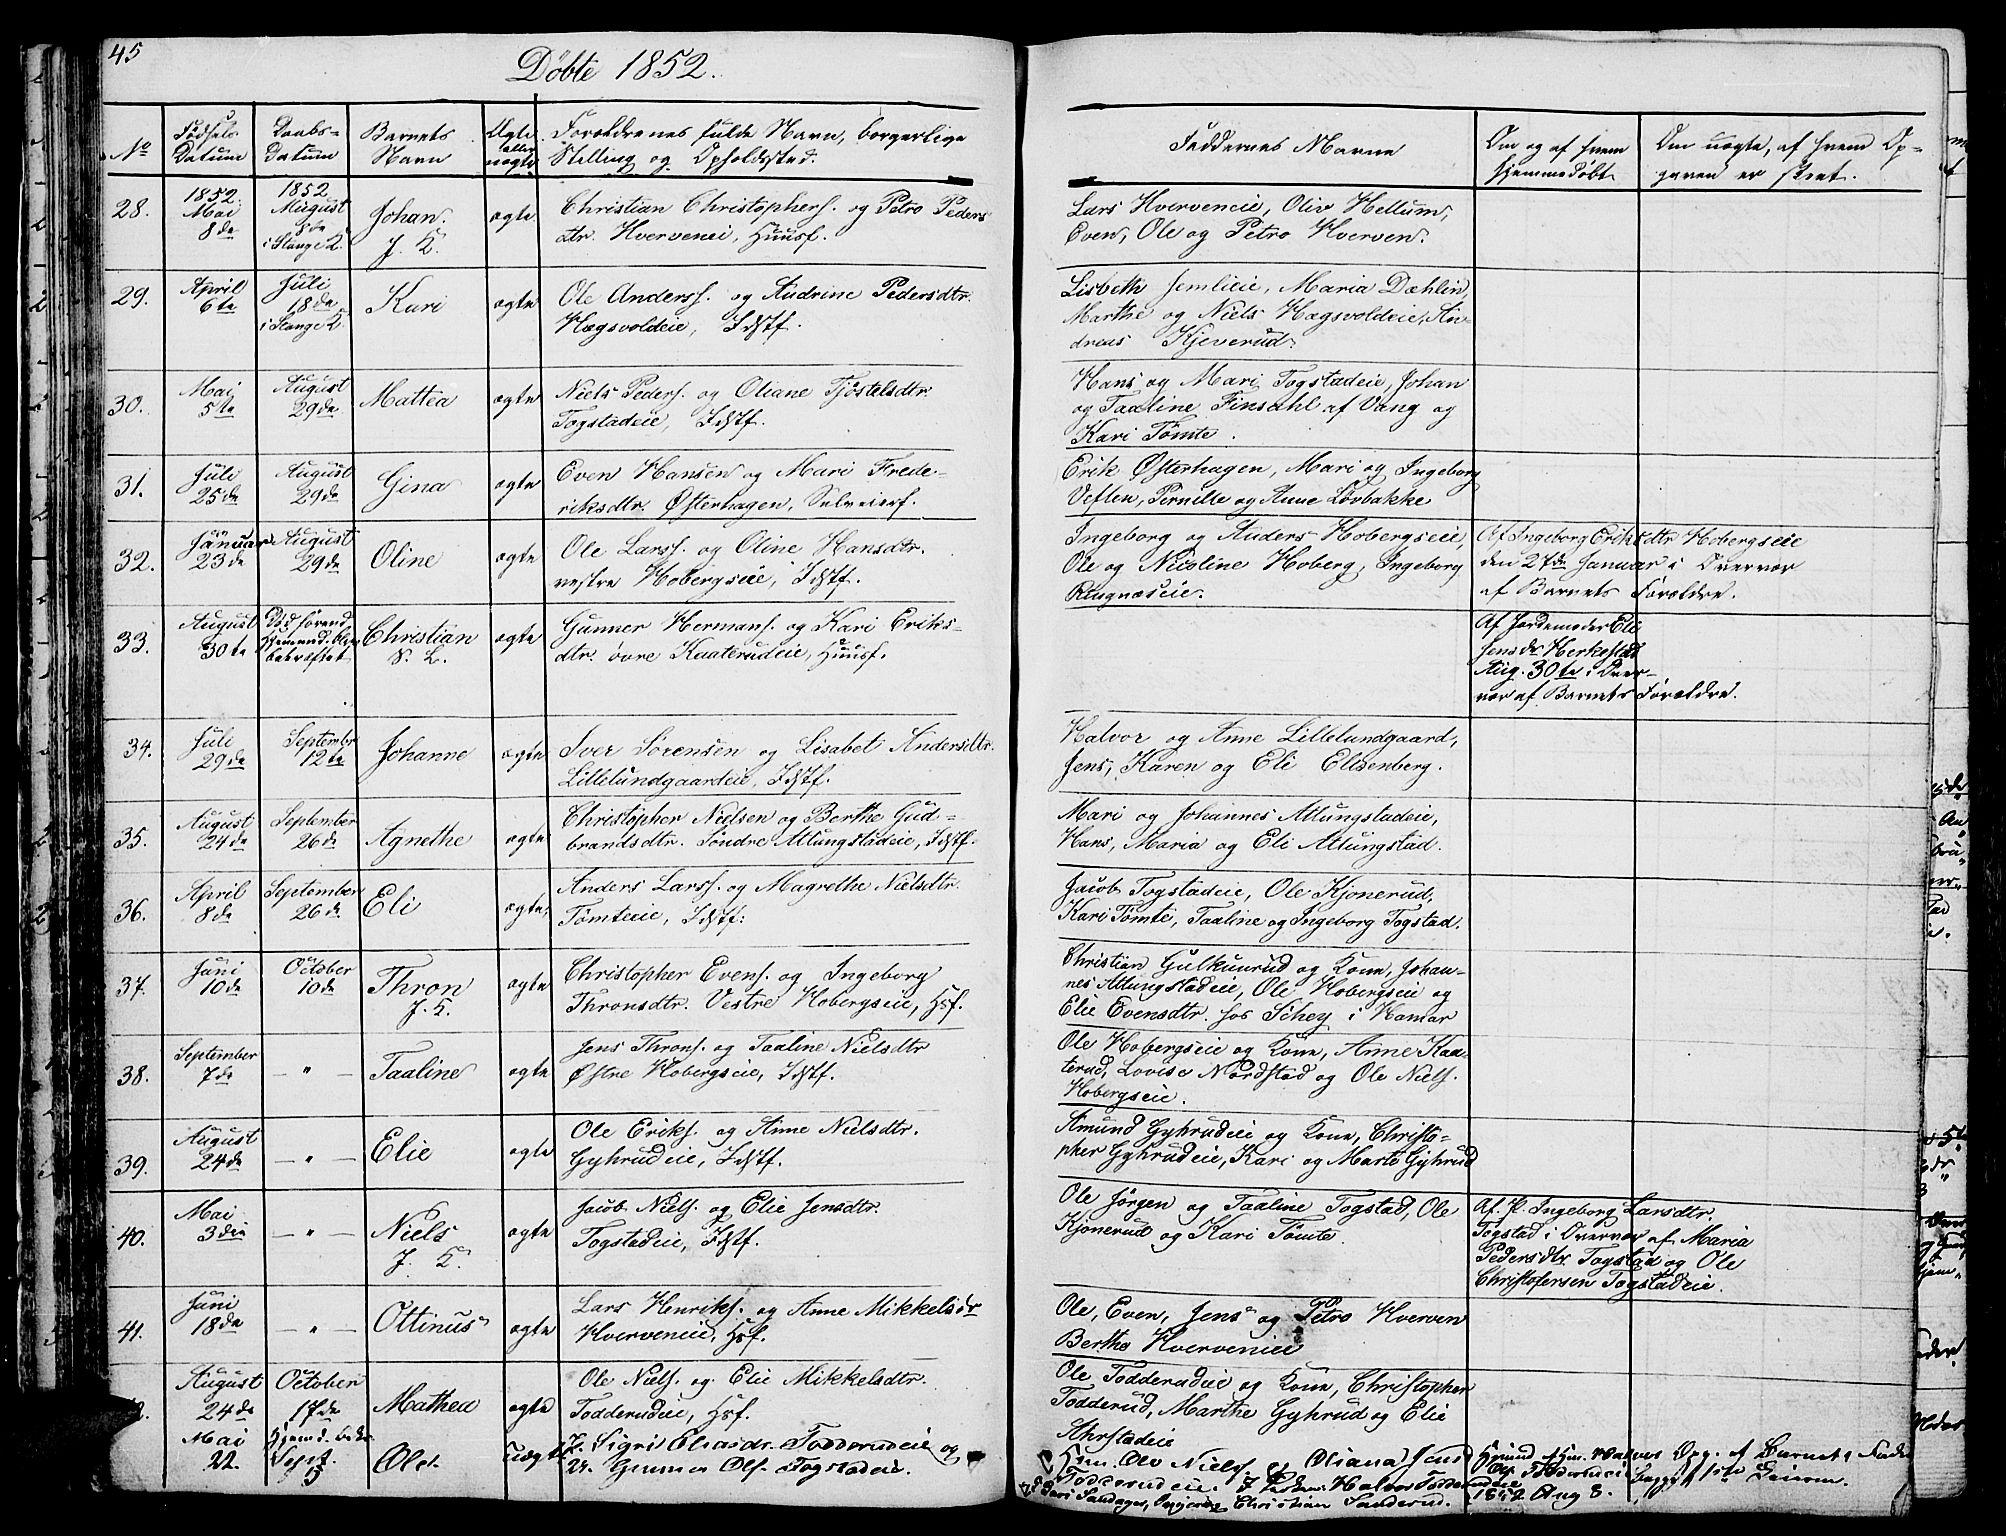 45
Døbte 1852.
No
Fødsels
Datum
Daabs-
Datum
Barnets
Navn
Ægte
eller
uægte
Forældrenes fulde Navn, borgerlige
Stilling og Opholdssted.
Faddernes Navne
Om og af hvem
hjemmedøbt
Om uægte, af hvem Op-
gaven er skeet.
28.
1852.
Mai
8de
1852
August
8de
i Stange K.
Johan.
J. K.
ægte
Christian Christophers. og Petro Peders
dtr. Hvervenei, Huusf.
Lars Hverveneie, Oliv Hellum,
Even, Ole og Petro Hverven.
29.
April
6te
Juli
18de
i Stange K.
Kari
ægte
Ole Anders. og Andrine Pedersdtr.
Hægsvoldeie, Idstf.
Lisbeth Jemlieie, Maria Dæhlin,
Marthe og Niels Hægsvoldeie, An-
dreas Kjeverud.
30.
Mai
5te
August
29de
Mattea
ægte
Niels Peders. og Oliane Tjøstelsdtr.
Togstadeie, Idstf.
Hans og Mari Togstadeie, Johan
og Taaline Finsahl af Vang og
Kari Tømte.
31.
Juli
25de
August
29de
Gina
ægte
Even Hansen og Mari Frede-
riksdtr. Østerhagen, Selveierf.
Erik Østerhagen, Mari og Ingeborg
Veflen, Pernille og Anne Lovbakke
32.
Januar
23de
August
29de
Oline
ægte
Ole Larss. og Oline Hansdtr.
vestre Hobergseie, Idstf.
Ingeborg og Anders Hobergseie,
Ole og Nicoline Hoberg, Ingeborg
Ringnæseie.
Af Ingeborg Eriksdtr Hobergseie
den 27de Januar i Overvær
af Barnets Forældre.
33.
August
30te
Død førend
Hjemmed. blev
bekræftet
Christian
S. L.
ægte
Gunner Hermans. og Kari Eriks-
dtr. øvre Kaaterudeie, Huusf.
Af Jordemoder Eli
Jensdr Herkestad
Aug. 30te i Over-
vær af Barnets Forældre.
34.
Juli
29de
September
12te
Johanne
ægte
Iver Sørensen og Lisabet Andersdtr.
Lillelundgaardeie, Idstf.
Halvor og Anne Lillelundgaard,
Jens, Karen og Eli Ellsenberg.
35.
August
24de
September
26de
Agnethe
ægte
Christopher Nielsen og Berthe Gud-
brandsdtr. Søndre Atlungstadeie, Idstf.
Mari og Johannes Atlungstadeie,
Hans, Maria og Eli Atlungstad.
36.
April
8de
September
26de
Eli
ægte
Anders Larss. og Magrethe Nielsdtr.
Tømteeie, Idstf.
Jacob Togstadeie, Ole Kjonerud,
Kari Tømte, Taaline og Ingeborg Togstad.
37.
Juni
10de
October
10de
Thron
J. K.
ægte
Christopher Evens. og Ingeborg
Thronsdtr. Vestre Hobergseie, Hsf.
Christian Gulkuurud og Kone, Johan-
nes Atlungstadeie, Ole Hobergseie og
Elie Evensdtr. hos Schey i Hamar
38.
September
7de
— " —
Taaline
ægte
Jens Throns. og Taaline Nielsdtr
Østre Hobergseie, Idstf.
Ole Hobergseie og Kone, Anne Kaa-
terud, Lovise Nordstad og Ole Niels.
Hobergseie.
39.
August
24de
— " —
Elie
ægte
Ole Eriks. og Anne Nielsdtr.
Gyhrudeie, Idstf.
Amund Gyhrudeie og Kone, Christo-
pher Gyhrudeie, Kari og Marte Gyhrud
40.
Mai
3die
— " —
Niels
J. K.
ægte
Jacob Niels. og Elie Jensdtr.
Togstadeie, Idstf.
Ole Jørgen og Taaline Togstad, Ole
Kjønerud og Kari Tømte.
Af P. Ingeborg Larsdtr.
Togstad i Overvær af Maria
Pedersdtr Togstad og Ole
Christofersen Togstadeie.
41.
Juni
18de
— " —
Ottinus
ægte
Lars Henriks. og Anne Mikkelsdr
Hverveneie, Hsf.
Ole, Even, Jens og Petro Hverven
Berthe Hvervenei
August
24de
October
17de
Mathea
ægte
Ole Niels. og Elie Mikkelsdtr.
Todderudeie, Hsf.
Ole Todderudeie og Kone, Christopher
Todderud, Marthe Gyhrud og Elie
Ahrstadeie
Mai
22.
Sept.
Ole
uægte
P. Sigri Eliasdr. Todderudeie og
U. Gunner Ols. Togstadeie.
Hsm. Ole Niels. og Oliana
Todderudeie. P. Halvor Todderudeie
Christian Sanderud.
Hjemd. af Hsm. Halvor
Ols. Todderudeie
1852 Aug 8.
Opg. af Barnets Fader